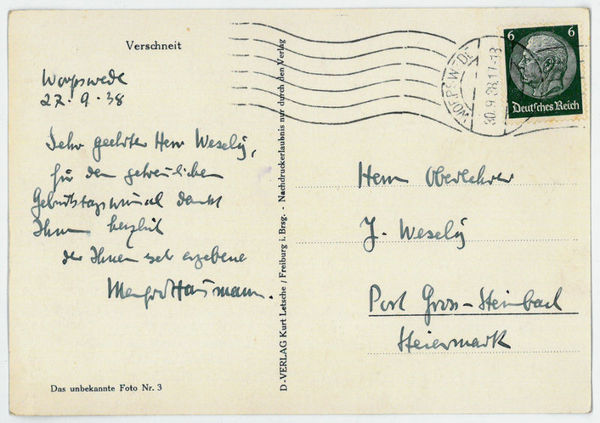 Verschneit
Worpswede
27. 9. 38
Sehr geehrter Herr Wesely,
für den getreulichen
Geburtstagswunsch dankt
Ihnen herzlich
der Ihnen sehr ergebene
Manfred Hausmann.
Das unbekannte Foto Nr. 3
D-VERLAG Kurt Letsche / Freiburg i. Brsg. - Nachdruckerlaubnis nur durch den Verlag
6 6
Deutsches Reich
30.9.38.17-18
Herrn Oberlehrer
J. Wesely
Post Gross-Steinbach
Steiermark